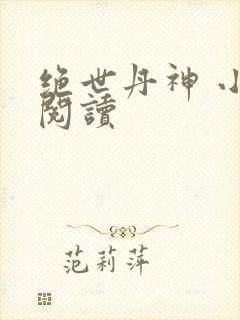 绝世丹神 小
閱讀
范莉萍